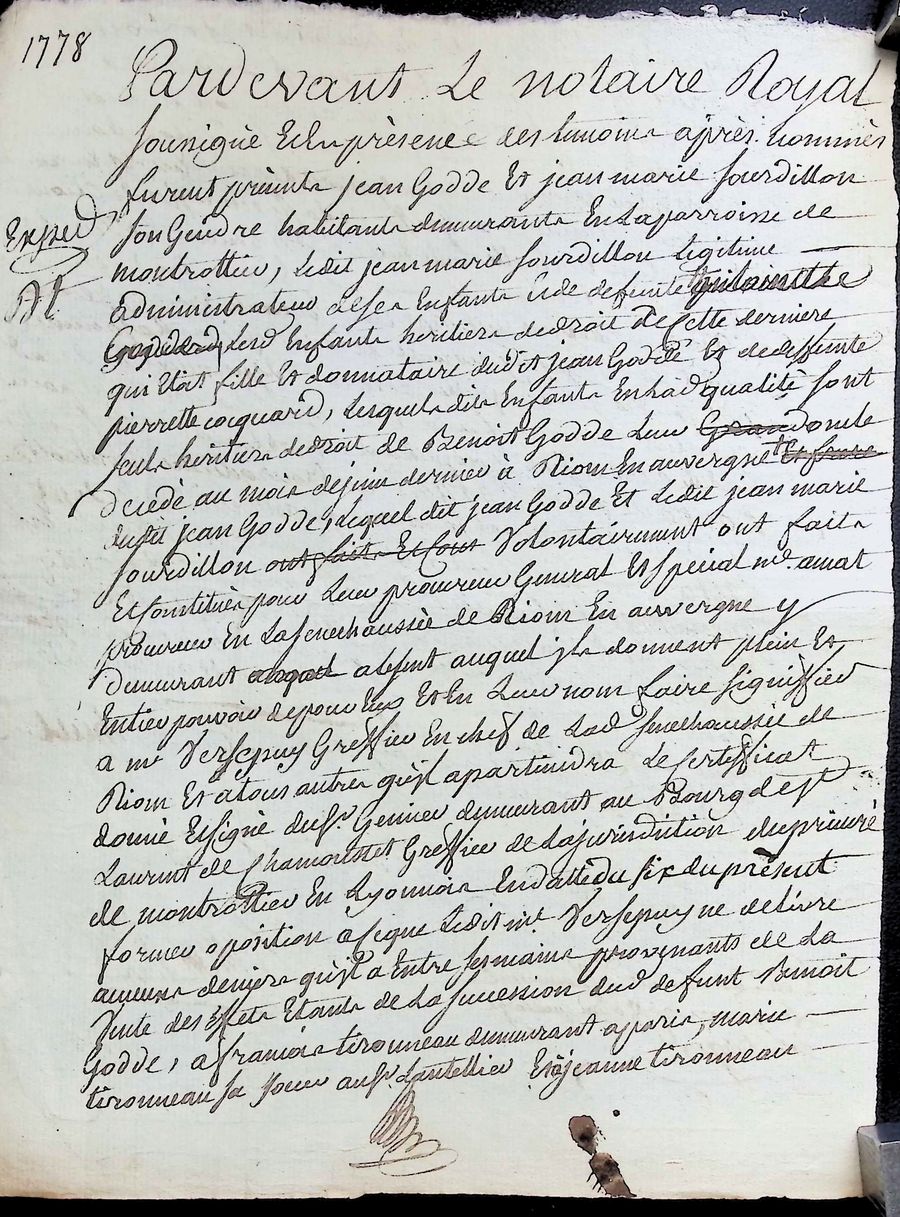 1778
Pardevant Le notaire Royal
soussigné Et En présence des temoins après nommés
furent présents jean Godde Et jean marie sourdillon
Exped
son Gendre habitants demeurants En La parroisse de
montrottier, Ledit jean marie sourdillon Legitime
administrateur de ses Enfants Et de defunte
Lesd Enfants heritiers de droit de Cette derniere
qui Etoit fille Et donnataire dudit jean Godde Et de deffunte
pierrette cocquard, Lesquels dits Enfants En Lad qualité sont
seuls heritiers de droit de Benoit Godde Leur Grand oncle
decedé au mois de juin dernier à Riom En auvergne Et frere
dudit jean Godde, Lequel dit jean Godde Et Ledit jean marie
sourdillon ont fait Et font Volontairement ont fait
Et Constitué pour Leur procureur General Et special mr. amat
procureur En La senechaussée de Riom En auvergne y
demeurant absent auquel ils donnent plein Et
Entier pouvoir de pour Eux Et En Leur nom faire signiffier
a mr Versepuy Greffier En chef de Lad senechaussée de
Riom Et a tous autres qu'il apartiendra Le Certifficat
donné Et signé du sr. Genier demeurant au Bourg de st
Laurent de Chamousset Greffier de La jurisdiction du prieuré
de montrottier En Lyonnois En datte du six du présent
former oposition à Ce que Ledit mr. Versepuy ne delivre
aucuns deniers qu'il a Entre ses mains provenants de La
Vente des Effets Etants de La succession dud defunt Benoit
Godde, a francois tironneau demeurant a paris, marie
tironneau sa soeur au sr Lautellier Et à jeanne tironneau